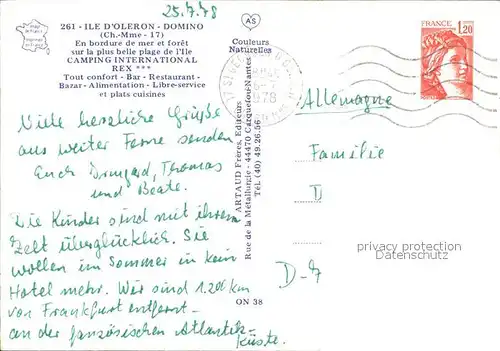 25.7.78
261 - ILE D'OLERON - DOMINO
(Ch.-Mme - 17)
En bordure de mer et forêt
sur la plus belle plage de l'Ile
CAMPING INTERNATIONAL
REX ***
Tout confort - Bar - Restaurant -
Bazar - Alimentation - Libre-service
et plats cuisinés
AS
Couleurs
Naturelles
FRANCE
1,20
Viele herzliche Grüße
aus weiter Ferne senden
Euch Irmgard, Thomas
und Beate.
Die Kinder sind mit ihrem
Zelt überglücklich. Sie
wollen im Sommer in kein
Hotel mehr. Wir sind 1.200 km
von Frankfurt entfernt -
an der französischen Atlantik-
küste.
ARTAUD Frères, Editeurs
Rue de la Métallurgie - 44470 Carquefou-Nantes
Tél. (40) 49.26.56
ON 38
Allemagne
Familie
D
D-7
privacy protection
Datenschutz